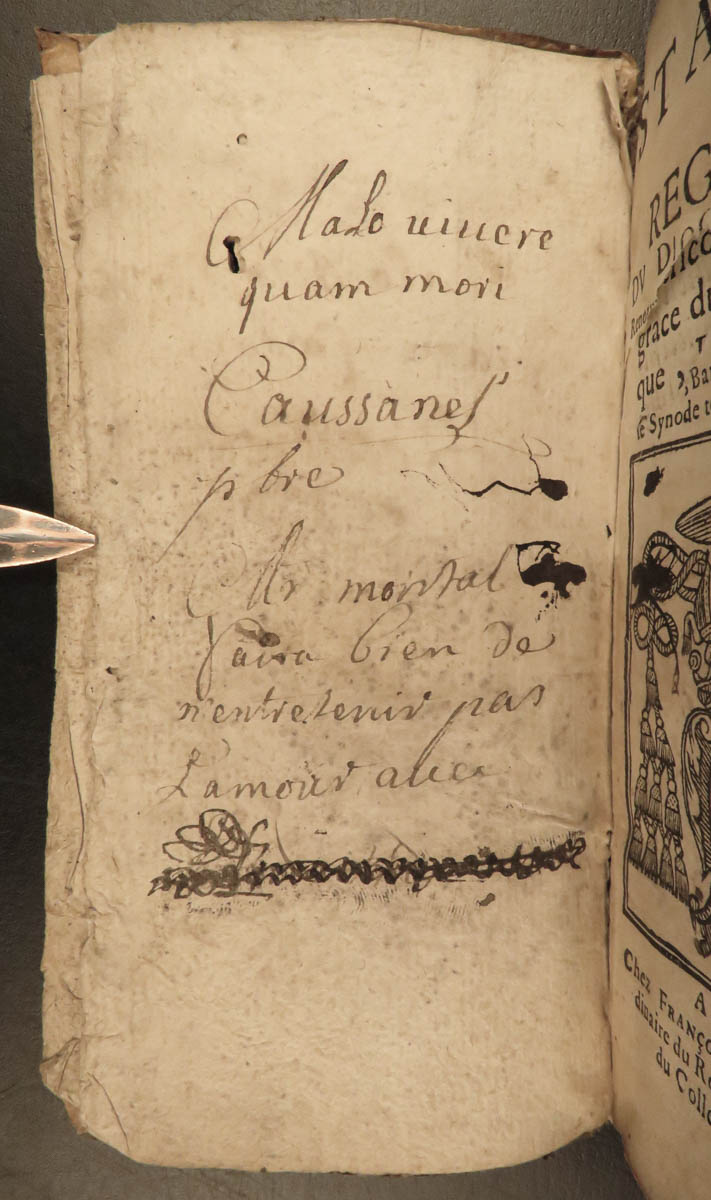 Malo uiuere
quam mori
Caussanel
pbre
Mr montal
faira bien de
n'entretenir pas
L'amour auec
STA
REG
DV DIOC
grace du
que
le Synode t
A
Chez FRANÇO
dinaire du Ro
du Colle